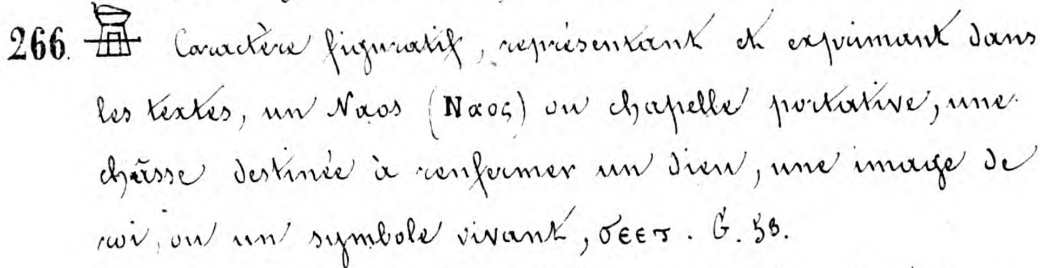 266. Caractère figuratif, représentant et exprimant dans
les textes, un Naos (Ναος) ou chapelle portative, une
châsse destinée à renfermer un dieu, une image de
roi, ou un symbole vivant, . G. 53.